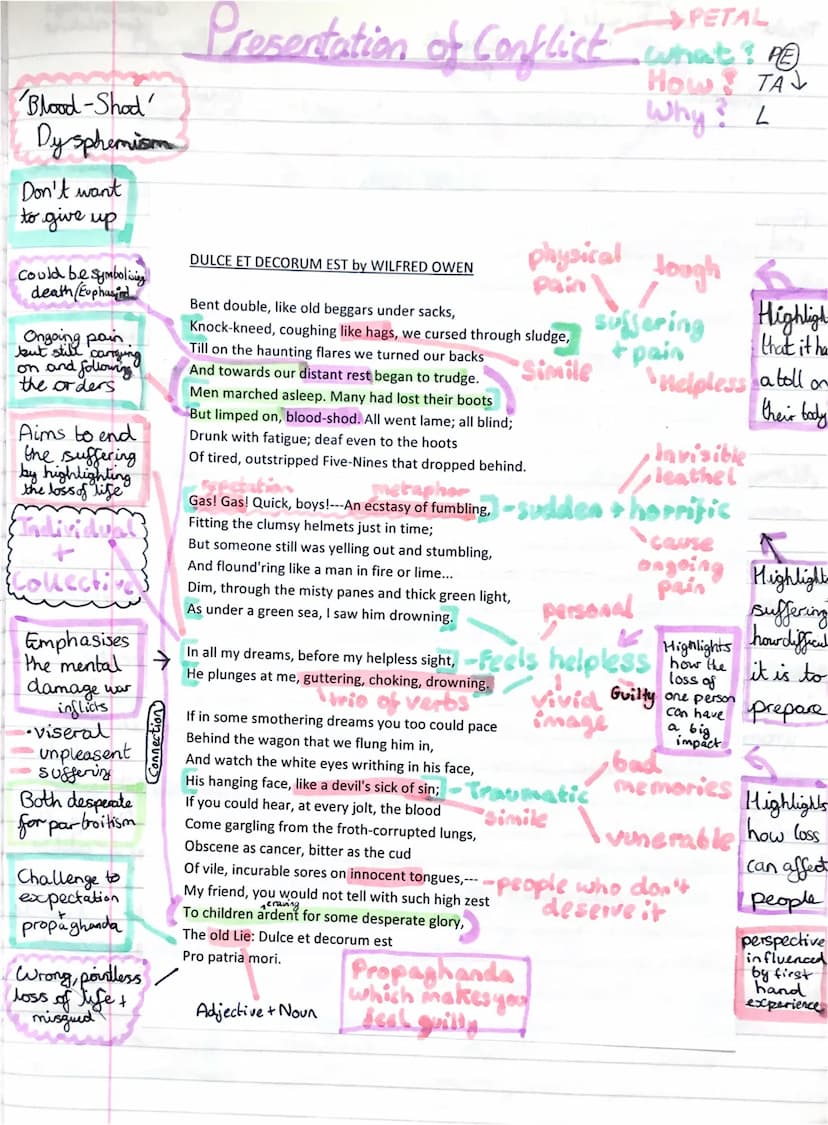 Presentation of Conflict
→ PETAL
What? PE
How? TA↓
Why? L
'Blood-Shod'
Dysphemism
Don't want
to give up
Could be symbolising
death/
Ongoing pain
but still carrying
on and following
the orders
Aims to end
the suffering
by highlighting
the loss of life
Individual
+
Collective
Emphasises
the mental
damage war
inflicts
• viseral
unpleasent
suffering
Both desperate
for
Challenge to
expectation
+
propaghanda
Wrong, pointless
loss of life +
misgued
Connection
DULCE ET DECORUM EST by WILFRED OWEN
Bent double, like old beggars under sacks,
Knock-kneed, coughing like hags, we cursed through sludge,
Till on the haunting flares we turned our backs
And towards our distant rest began to trudge.
Men marched asleep. Many had lost their boots
But limped on, blood-shod. All went lame; all blind;
Drunk with fatigue; deaf even to the hoots
Of tired, outstripped Five-Nines that dropped behind.
metaphor
Gas! Gas! Quick, boys!---An ecstasy of fumbling,
Fitting the clumsy helmets just in time;
But someone still was yelling out and stumbling,
And flound'ring like a man in fire or lime...
Dim, through the misty panes and thick green light,
As under a green sea, I saw him drowning.
In all my dreams, before my helpless sight,
He plunges at me, guttering, choking, drowning.
trio of verbs
If in some smothering dreams you too could pace
Behind the wagon that we flung him in,
And watch the white eyes writhing in his face,
His hanging face, like a devil's sick of sin;
If you could hear, at every jolt, the blood
Come gargling from the froth-corrupted lungs,
Obscene as cancer, bitter as the cud
Of vile, incurable sores on innocent tongues,---
My friend, you would not tell with such high zest
craving
To children ardent for some desperate glory,
The old Lie: Dulce et decorum est
Pro patria mori.
Adjective + Noun
Propaghanda
which makes you
feel guilty
physical
pain
tough
suffering
+ pain
Simile
Helpless
Invisible
leathel
-sudden + horrific
cause
ongoing
pain
personal
-Feels helpless
vivid
image
Guilty
Highlights
how the
loss of
one person
can have
a big
impact
bad
memories
-Traumatic
simile
vunerable
-people who don't
deserve it
Highligh
that it ha
a toll on
their body
Highlight
suffering
how difficul
it is to
prepare
Highlights
how loss
can affect
people
perspective
influenced
by first
hand
experience